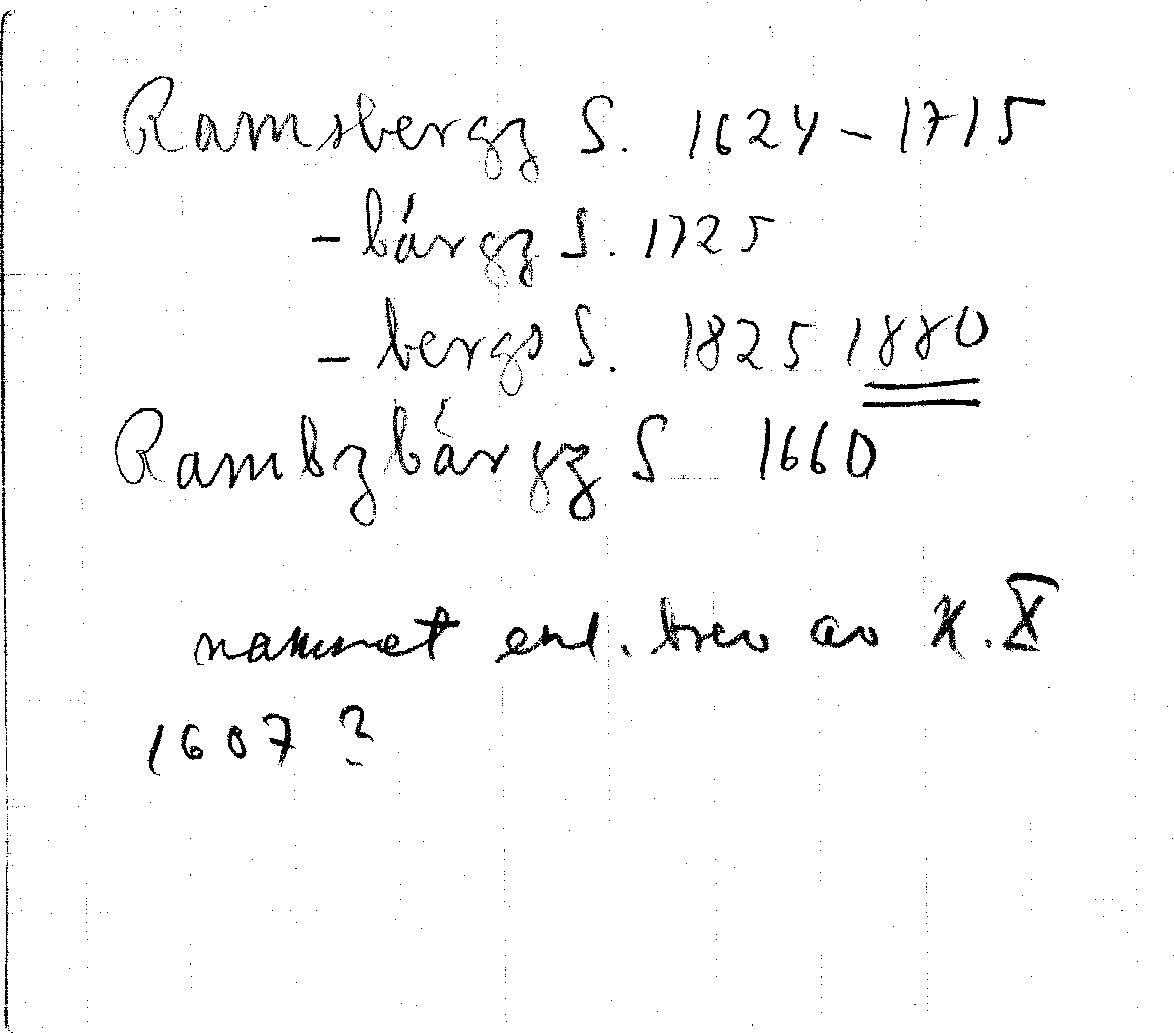 Ramsbergz S. 1624 - 1715
- bárgz S. 1725
- bergs S. 1825 1880
Rambzbárgz S 1660
namnet enl. brev av K. IX
1607?